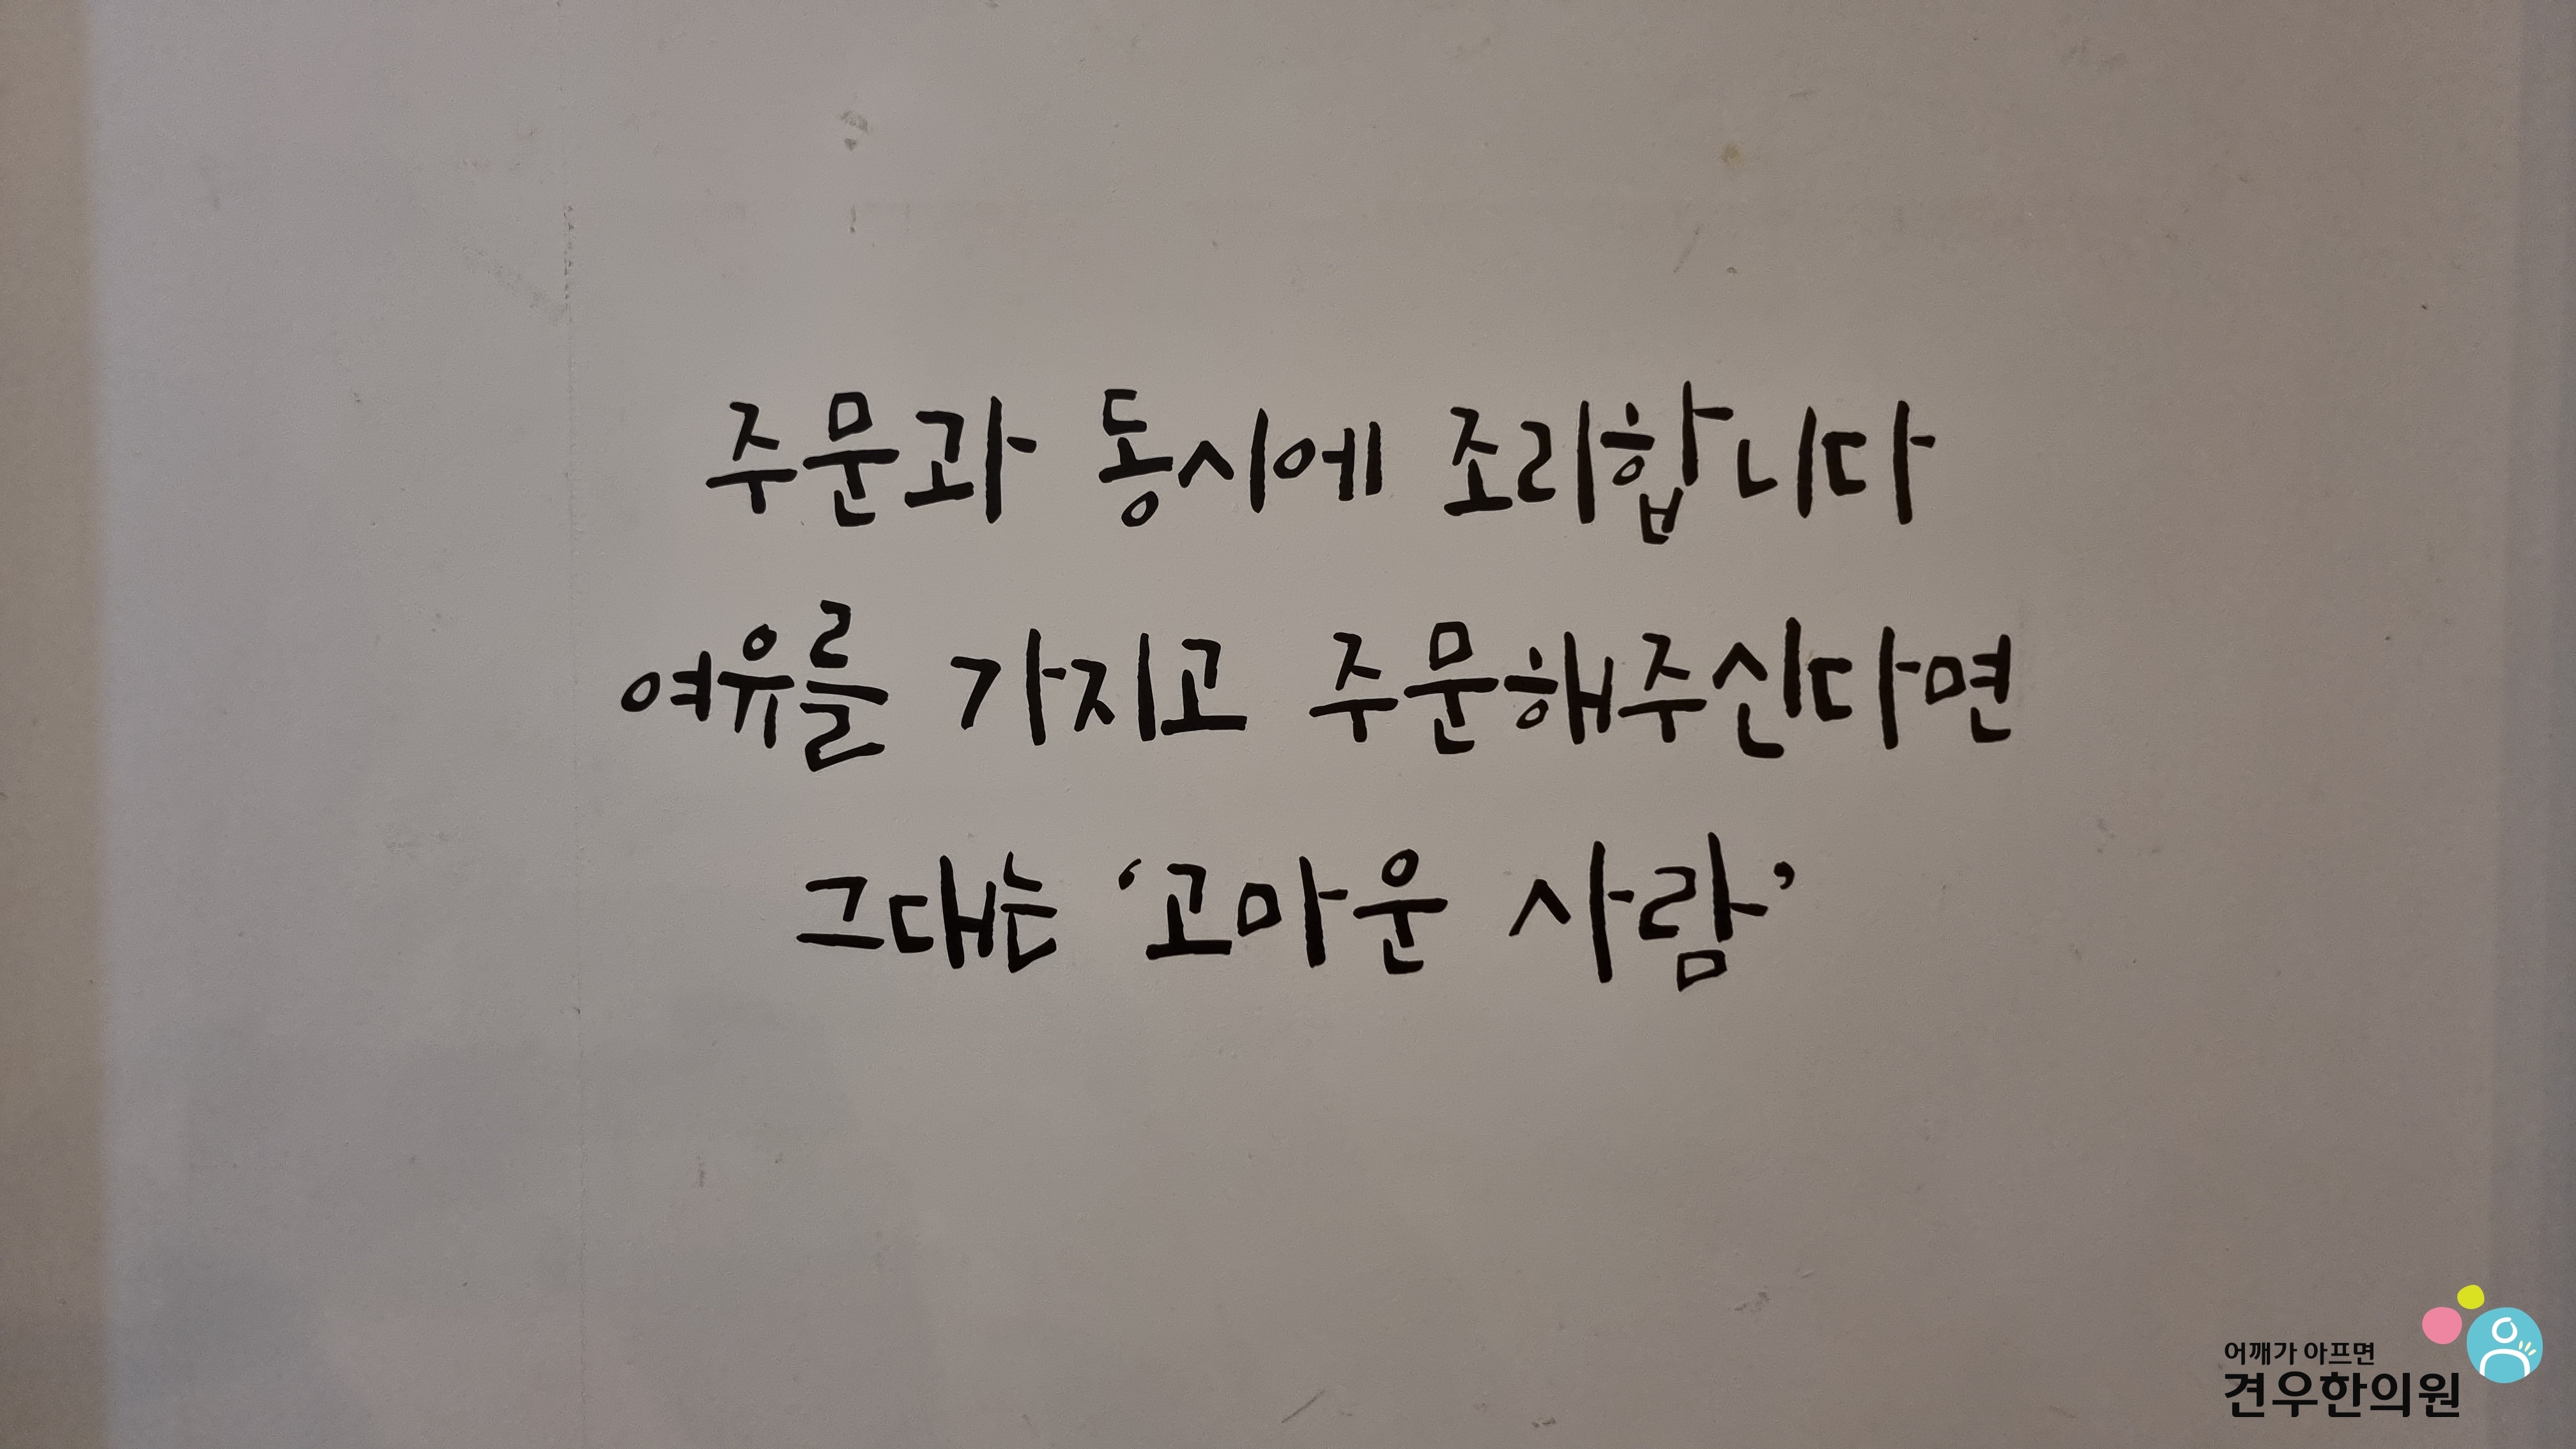 주문과 동시에 조리합니다
여유를 가지고 주문해주신다면
그대는 ‘고마운 사람’
어깨가 아프면
견우한의원